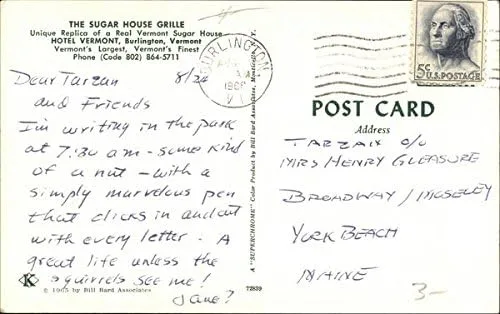 THE SUGAR HOUSE GRILLE
Unique Replica of a Real Vermont Sugar House
HOTEL VERMONT, Burlington, Vermont
Vermont's Largest, Vermont's Finest
Phone (Code 802) 864-5711
Dear Tarzan 8/24
and Friends
I'm writing in the park
at 7:30 am - some kind
of a nut - with a
simply marvelous pen
that clicks in and out
with every letter. A
great life unless the
squirrels see me!
Jane?
K
© 1965 by Bill Bard Associates
72839
A "SUPERCHROME" Color Product by Bill Bard Associates, Monticello,
BURLINGTON
VT
5¢ U.S. POSTAGE
POST CARD
Address
TARZAN c/o
MRS HENRY GLEASURE
BROADWAY / MOSELEY
YORK BEACH
MAINE
3-